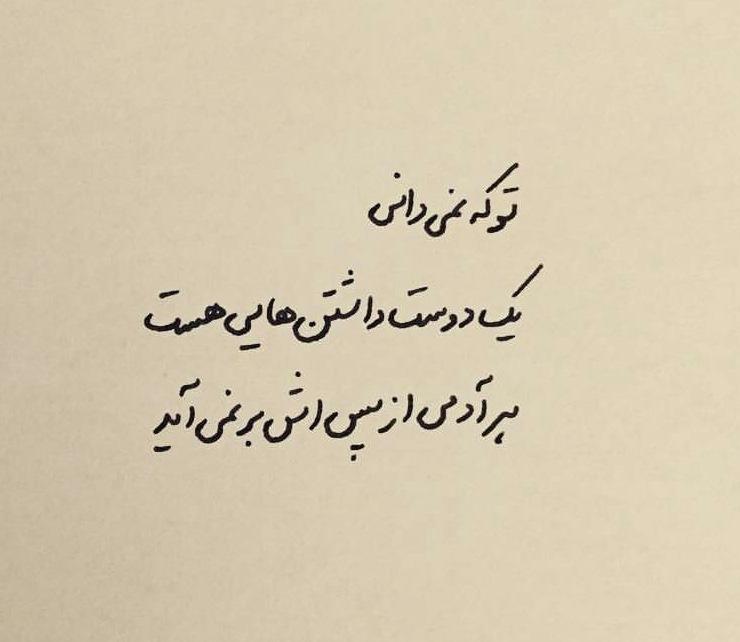 تو که نمی دانی
یک دوست داشتن هایی هست
هر آدمی از پس اش بر نمی آید